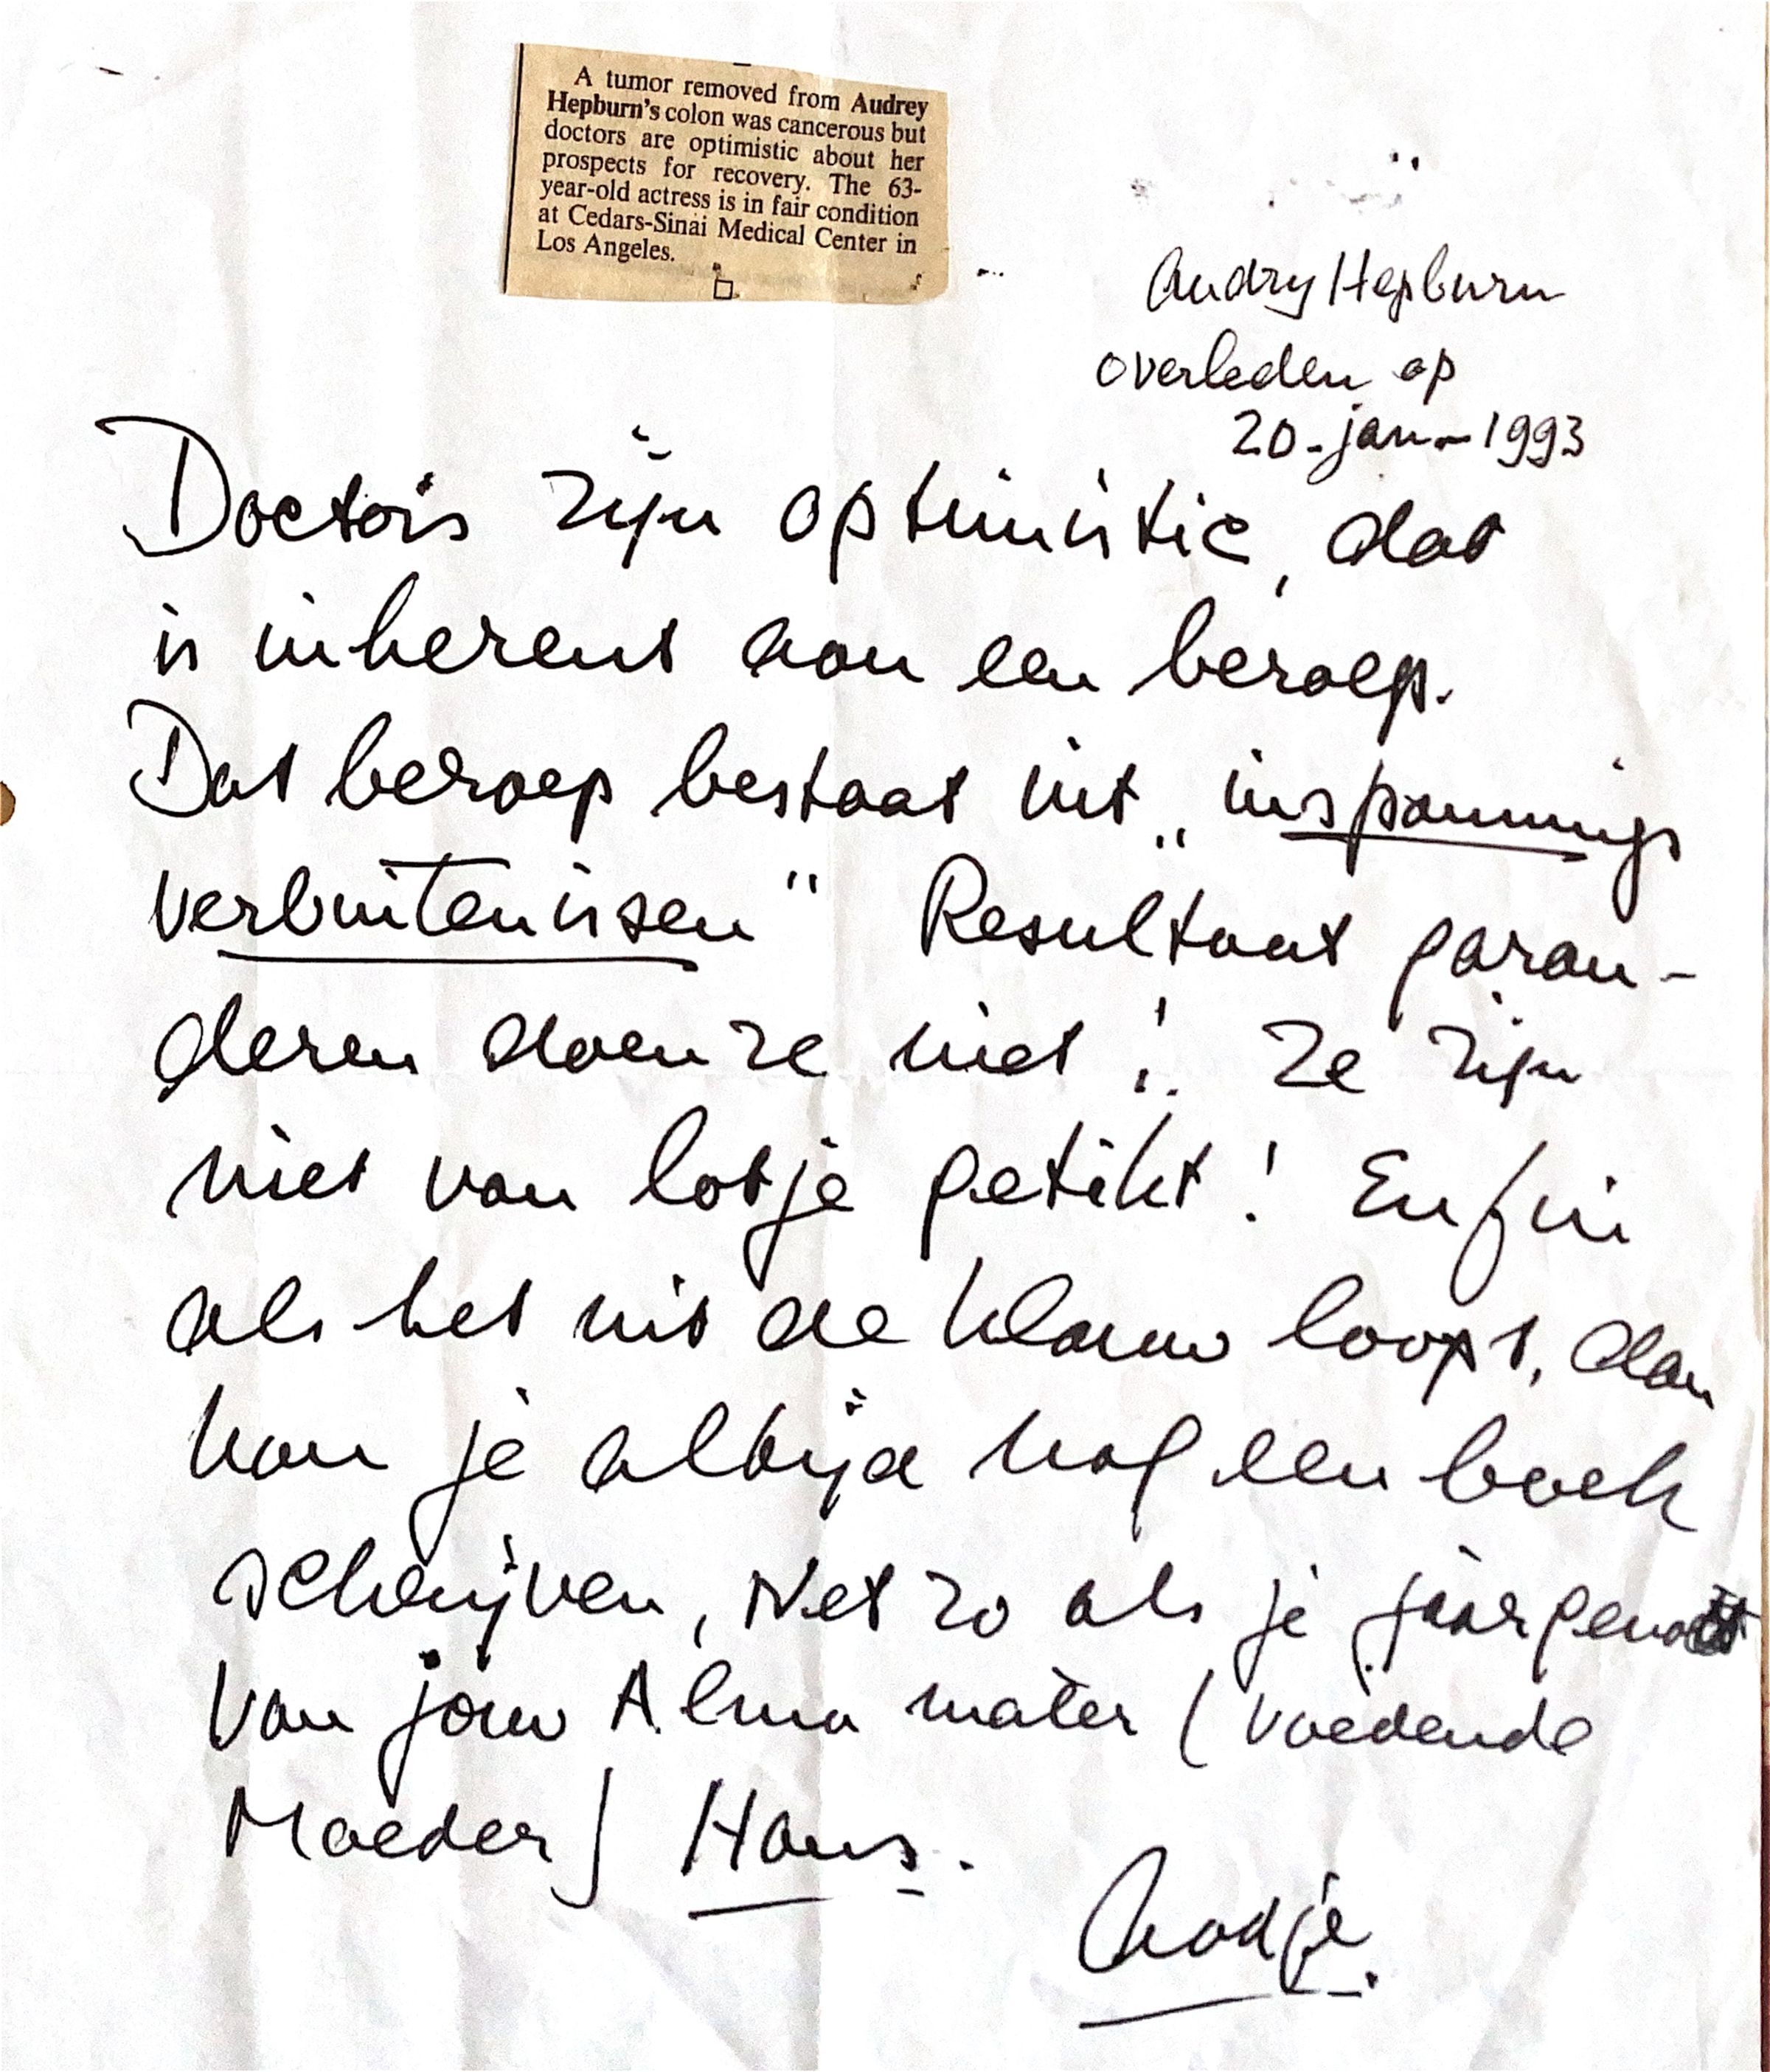 A tumor removed from Audrey
Hepburn's colon was cancerous but
doctors are optimistic about her
prospects for recovery. The 63-
year-old actress is in fair condition
at Cedars-Sinai Medical Center in
Los Angeles.
Audry Hepburn
overleden op
20-jan-1993
Doctors zijn optimistic, dat
is inherent aan een beroep.
Dat beroep bestaat uit „inspannings
verbintenissen" Resultaat garan-
deren doen ze niet! Ze zijn
niet van lotje getikt! Enfin
als het uit de klauw loopt, dan
kan je altijd nog een boek
schrijven, Net zo als je jaargenoot
van jouw Alma mater (voedende
Moeder) Hans.